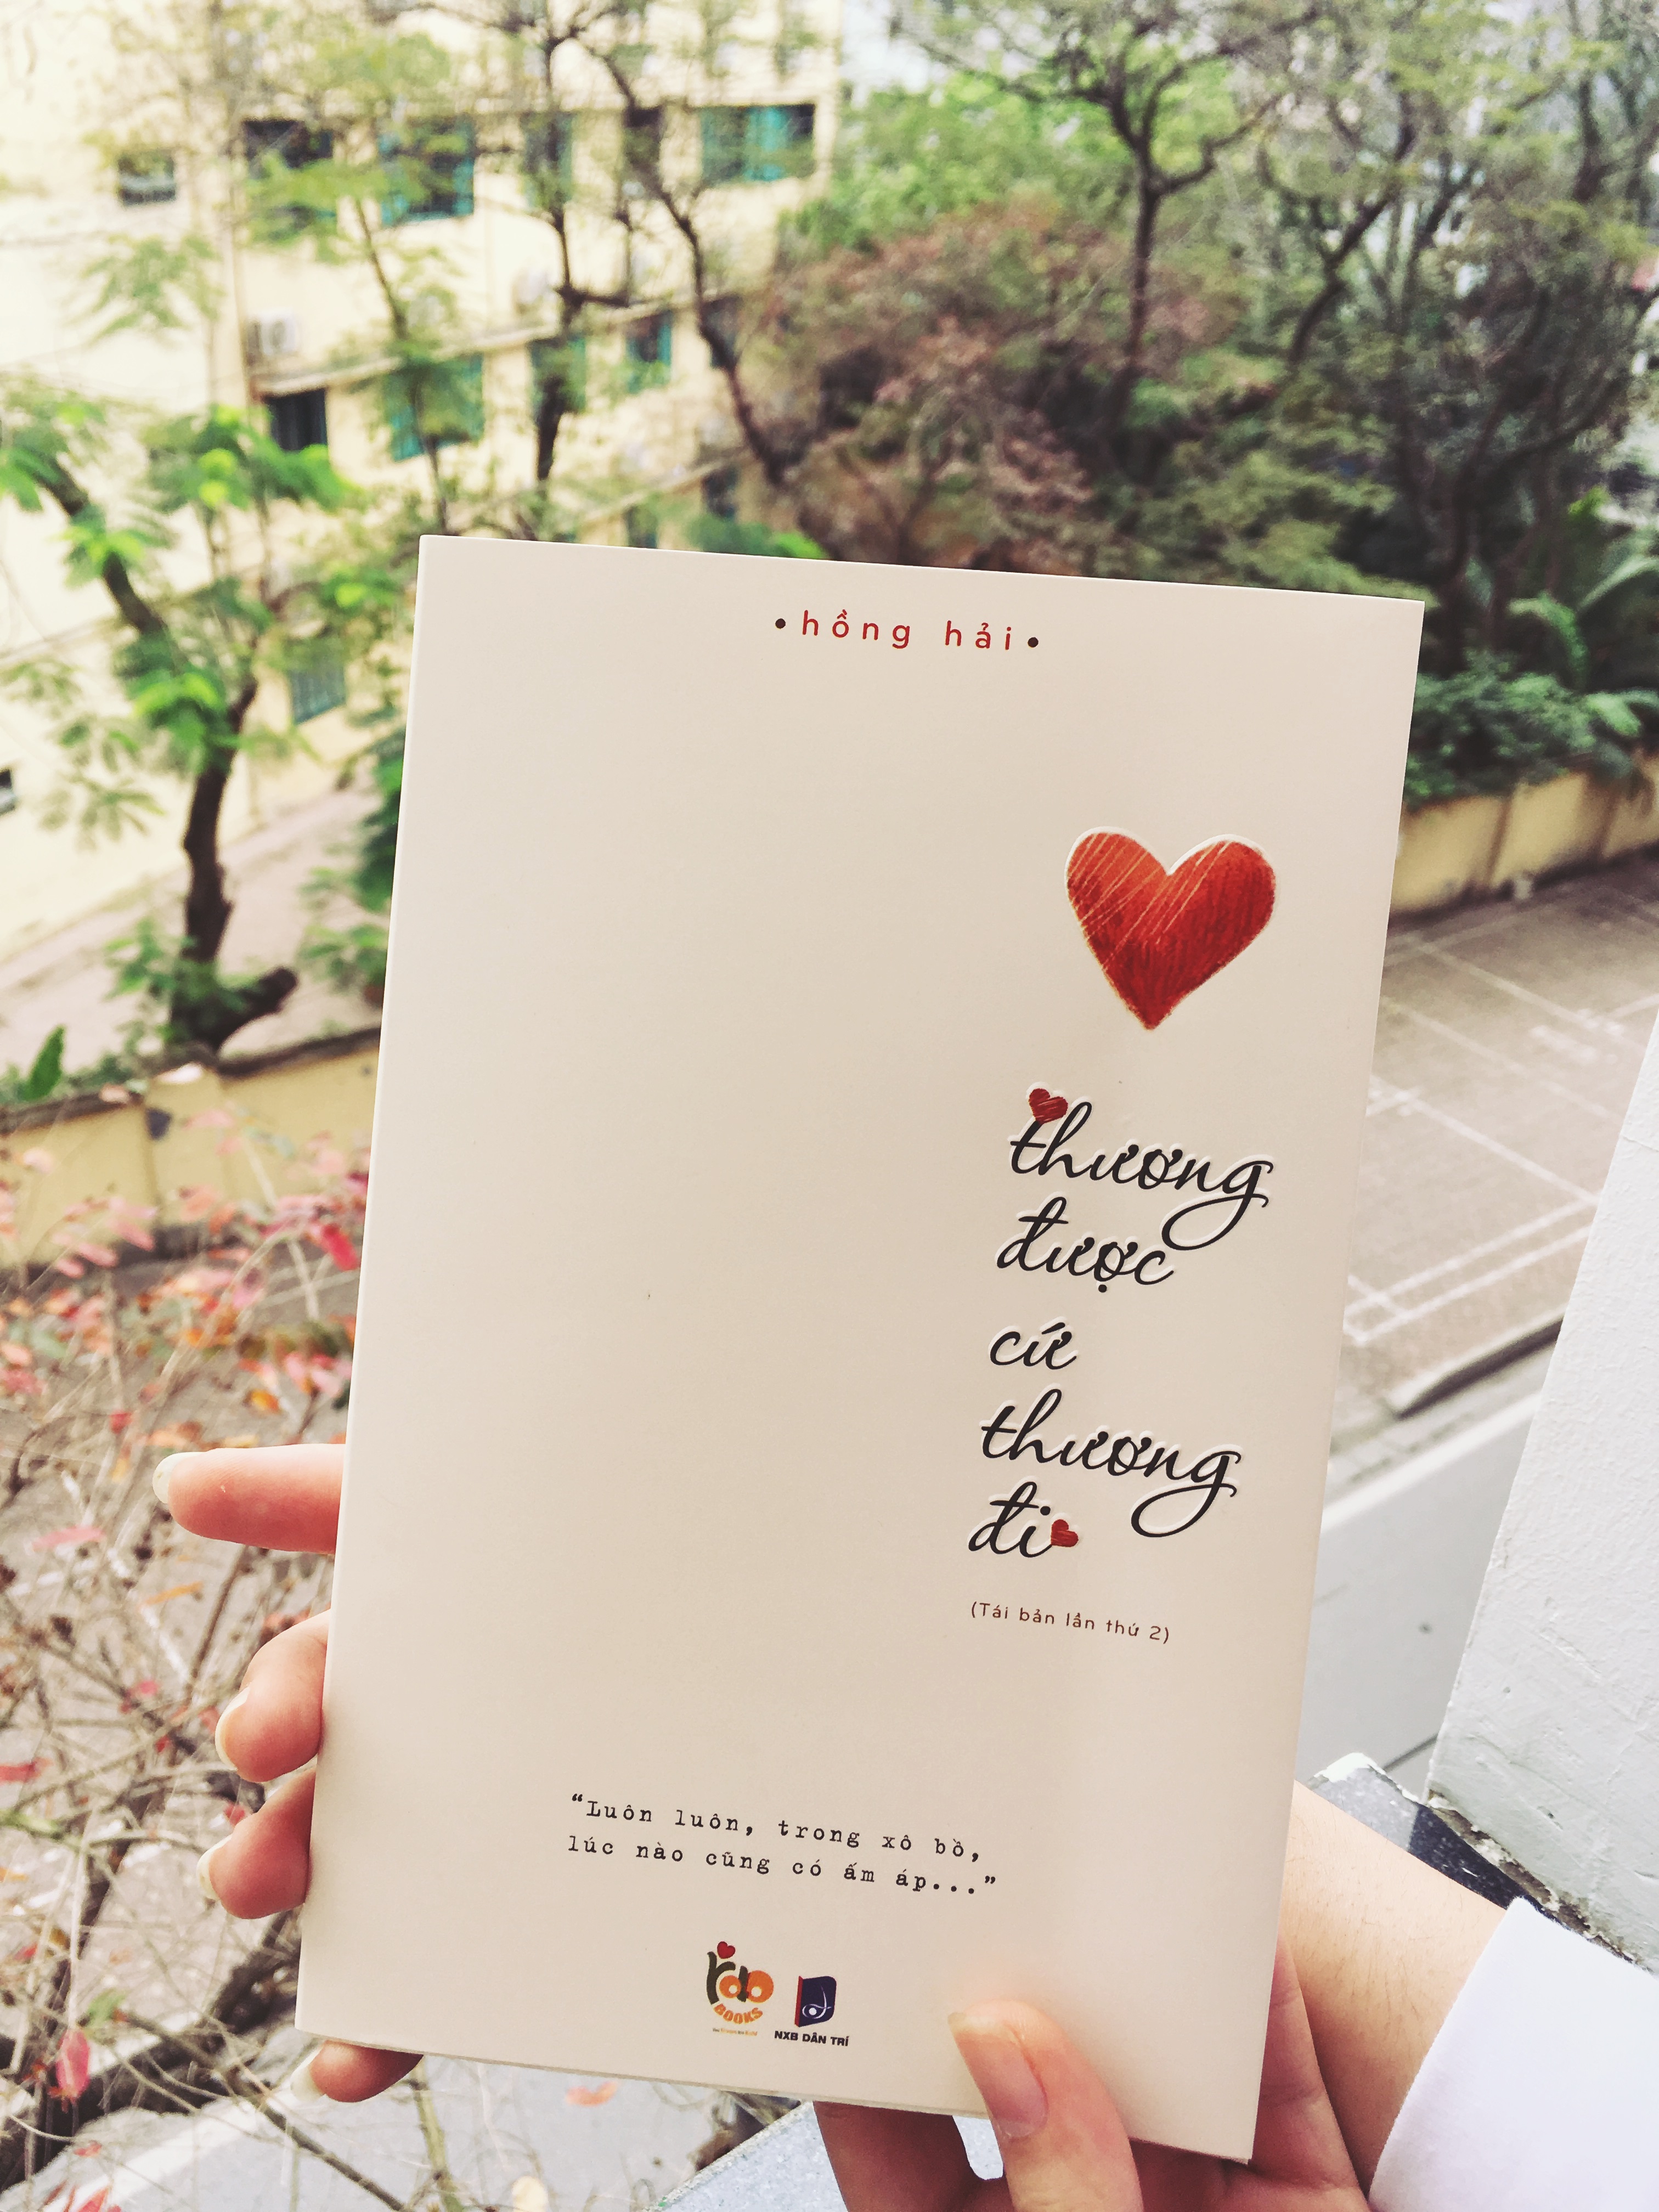 •hồng hải•
thương
được
cứ
thương
đi
(Tái bản lần thứ 2)
“Luôn luôn, trong xô bồ,
lúc nào cũng có ấm áp...”
BOOKS
NXB DÂN TRÍ